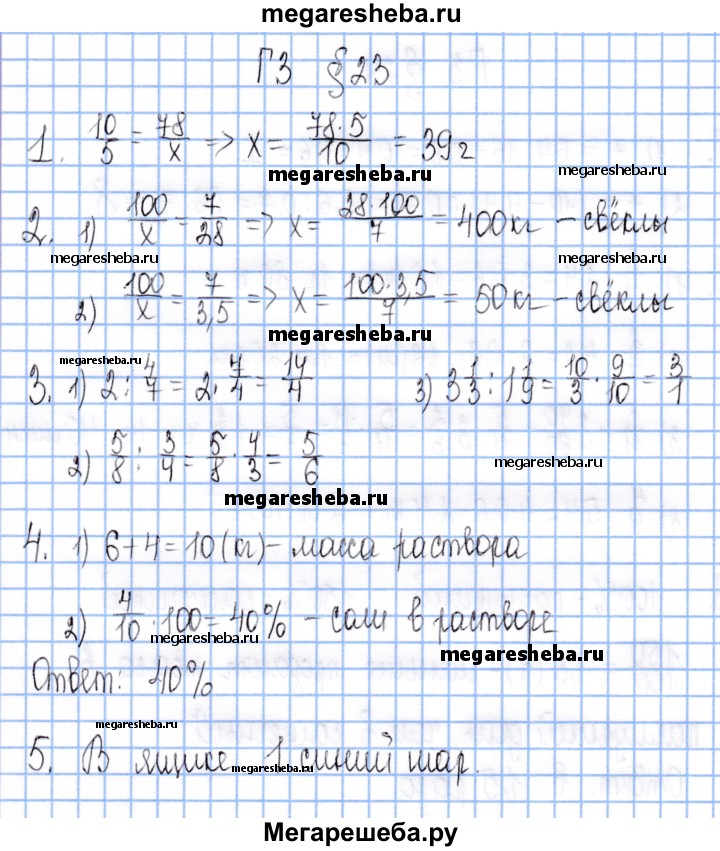 megaresheba.ru
ГЗ §23
1. 10/5 = 78/x => x = 78·5/10 = 39 г
megaresheba.ru
megaresheba.ru
2. 1) 100/x = 7/28 => x = 28·100/7 = 400 кг – свёклы
megaresheba.ru
megaresheba.ru
2) 100/x = 7/3,5 => x = 100·3,5/7 = 50 кг – свёклы
megaresheba.ru
megaresheba.ru
3. 1) 2 : 4/7 = 2 · 7/4 = 14/4 3) 3 1/3 : 1 1/9 = 10/3 · 9/10 = 3/1
2) 5/8 : 3/4 = 5/8 · 4/3 = 5/6
megaresheba.ru
megaresheba.ru
4. 1) 6+4=10 (кг) – масса раствора
2) 4/10 · 100 = 40% – соли в растворе
megaresheba.ru
megaresheba.ru
Ответ: 40%
megaresheba.ru
5. В ящике 1 синий шар.
megaresheba.ru
Мегарешеба.ру